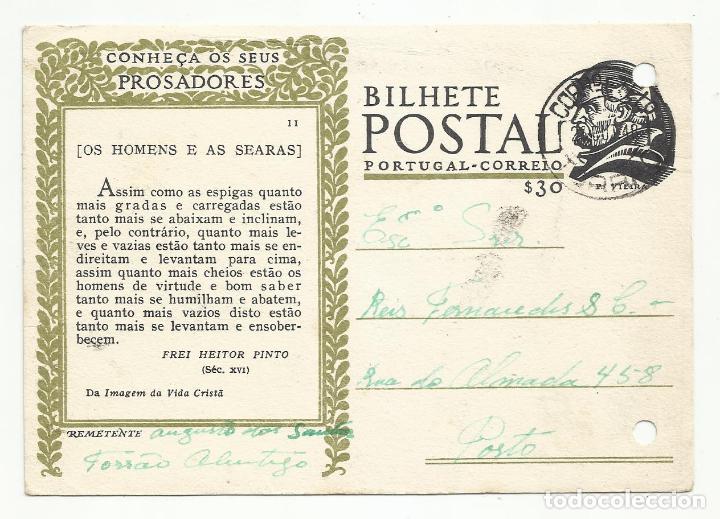 CONHEÇA OS SEUS
PROSADORES
11
[OS HOMENS E AS SEARAS]
Assim como as espigas quanto
mais gradas e carregadas estão
tanto mais se abaixam e inclinam,
e, pelo contrário, quanto mais le-
ves e vazias estão tanto mais se en-
direitam e levantam para cima,
assim quanto mais cheios estão os
homens de virtude e bom saber
tanto mais se humilham e abatem,
e quanto mais vazios disto estão
tanto mais se levantam e ensober-
becem.
FREI HEITOR PINTO
(Séc. XVI)
Da Imagem da Vida Cristã
REMETENTE Augusto dos Santos
Torrão Alentejo
BILHETE
POSTAL
PORTUGAL-CORREIO
$30
P. VIEIRA
CORREIO
Snrs.
Reis Fernandes & C.
Rua do Almada 458
Porto
todocoleccion